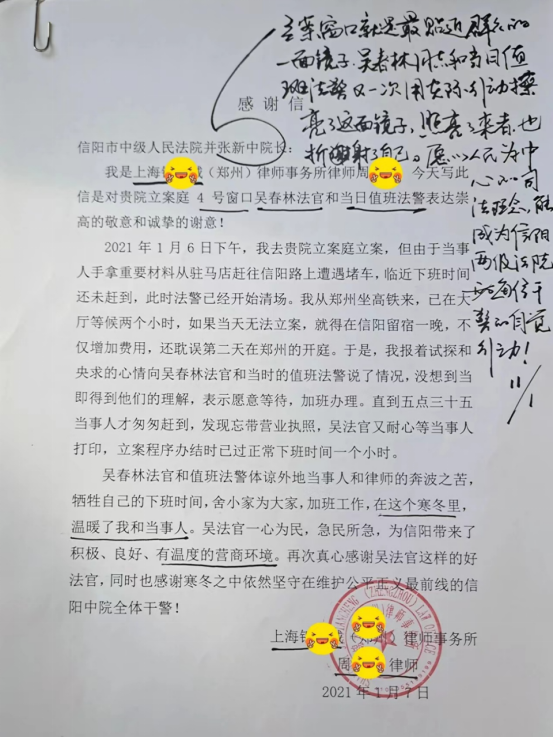 立案窗口就是最贴近群众的
一面镜子.吴春林同志和当日值
班法警又一次用实际行动擦
亮了这面镜子,照亮了来者,也
折射了自己。愿以人民为中
心的司
法理念,能
成为信阳
两级法院
每位干
警的自觉
行动!
11/1
感谢信
信阳市中级人民法院并张新中院长:
我是上海 (郑州)律师事务所律师周 今天写此
信是对贵院立案庭 4 号窗口吴春林法官和当日值班法警表达崇
高的敬意和诚挚的谢意!
2021 年 1 月 6 日下午,我去贵院立案庭立案,但由于当事
人手拿重要材料从驻马店赶往信阳路上遭遇堵车,临近下班时间
还未赶到,此时法警已经开始清场。我从郑州坐高铁来,已在大
厅等候两个小时,如果当天无法立案,就得在信阳留宿一晚,不
仅增加费用,还耽误第二天在郑州的开庭。于是,我报着试探和
央求的心情向吴春林法官和当时的值班法警说了情况,没想到当
即得到他们的理解,表示愿意等待,加班办理。直到五点三十五
当事人才匆匆赶到,发现忘带营业执照,吴法官又耐心等当事人
打印,立案程序办结时已过正常下班时间一个小时。
吴春林法官和值班法警体谅外地当事人和律师的奔波之苦,
牺牲自己的下班时间,舍小家为大家,加班工作,在这个寒冬里,
温暖了我和当事人。吴法官一心为民,急民所急,为信阳带来了
积极、良好、有温度的营商环境。再次真心感谢吴法官这样的好
法官,同时也感谢寒冬之中依然坚守在维护公平正义最前线的信
阳中院全体干警!
上海 律师事务所
周 律师
2021 年 1 月 7 日